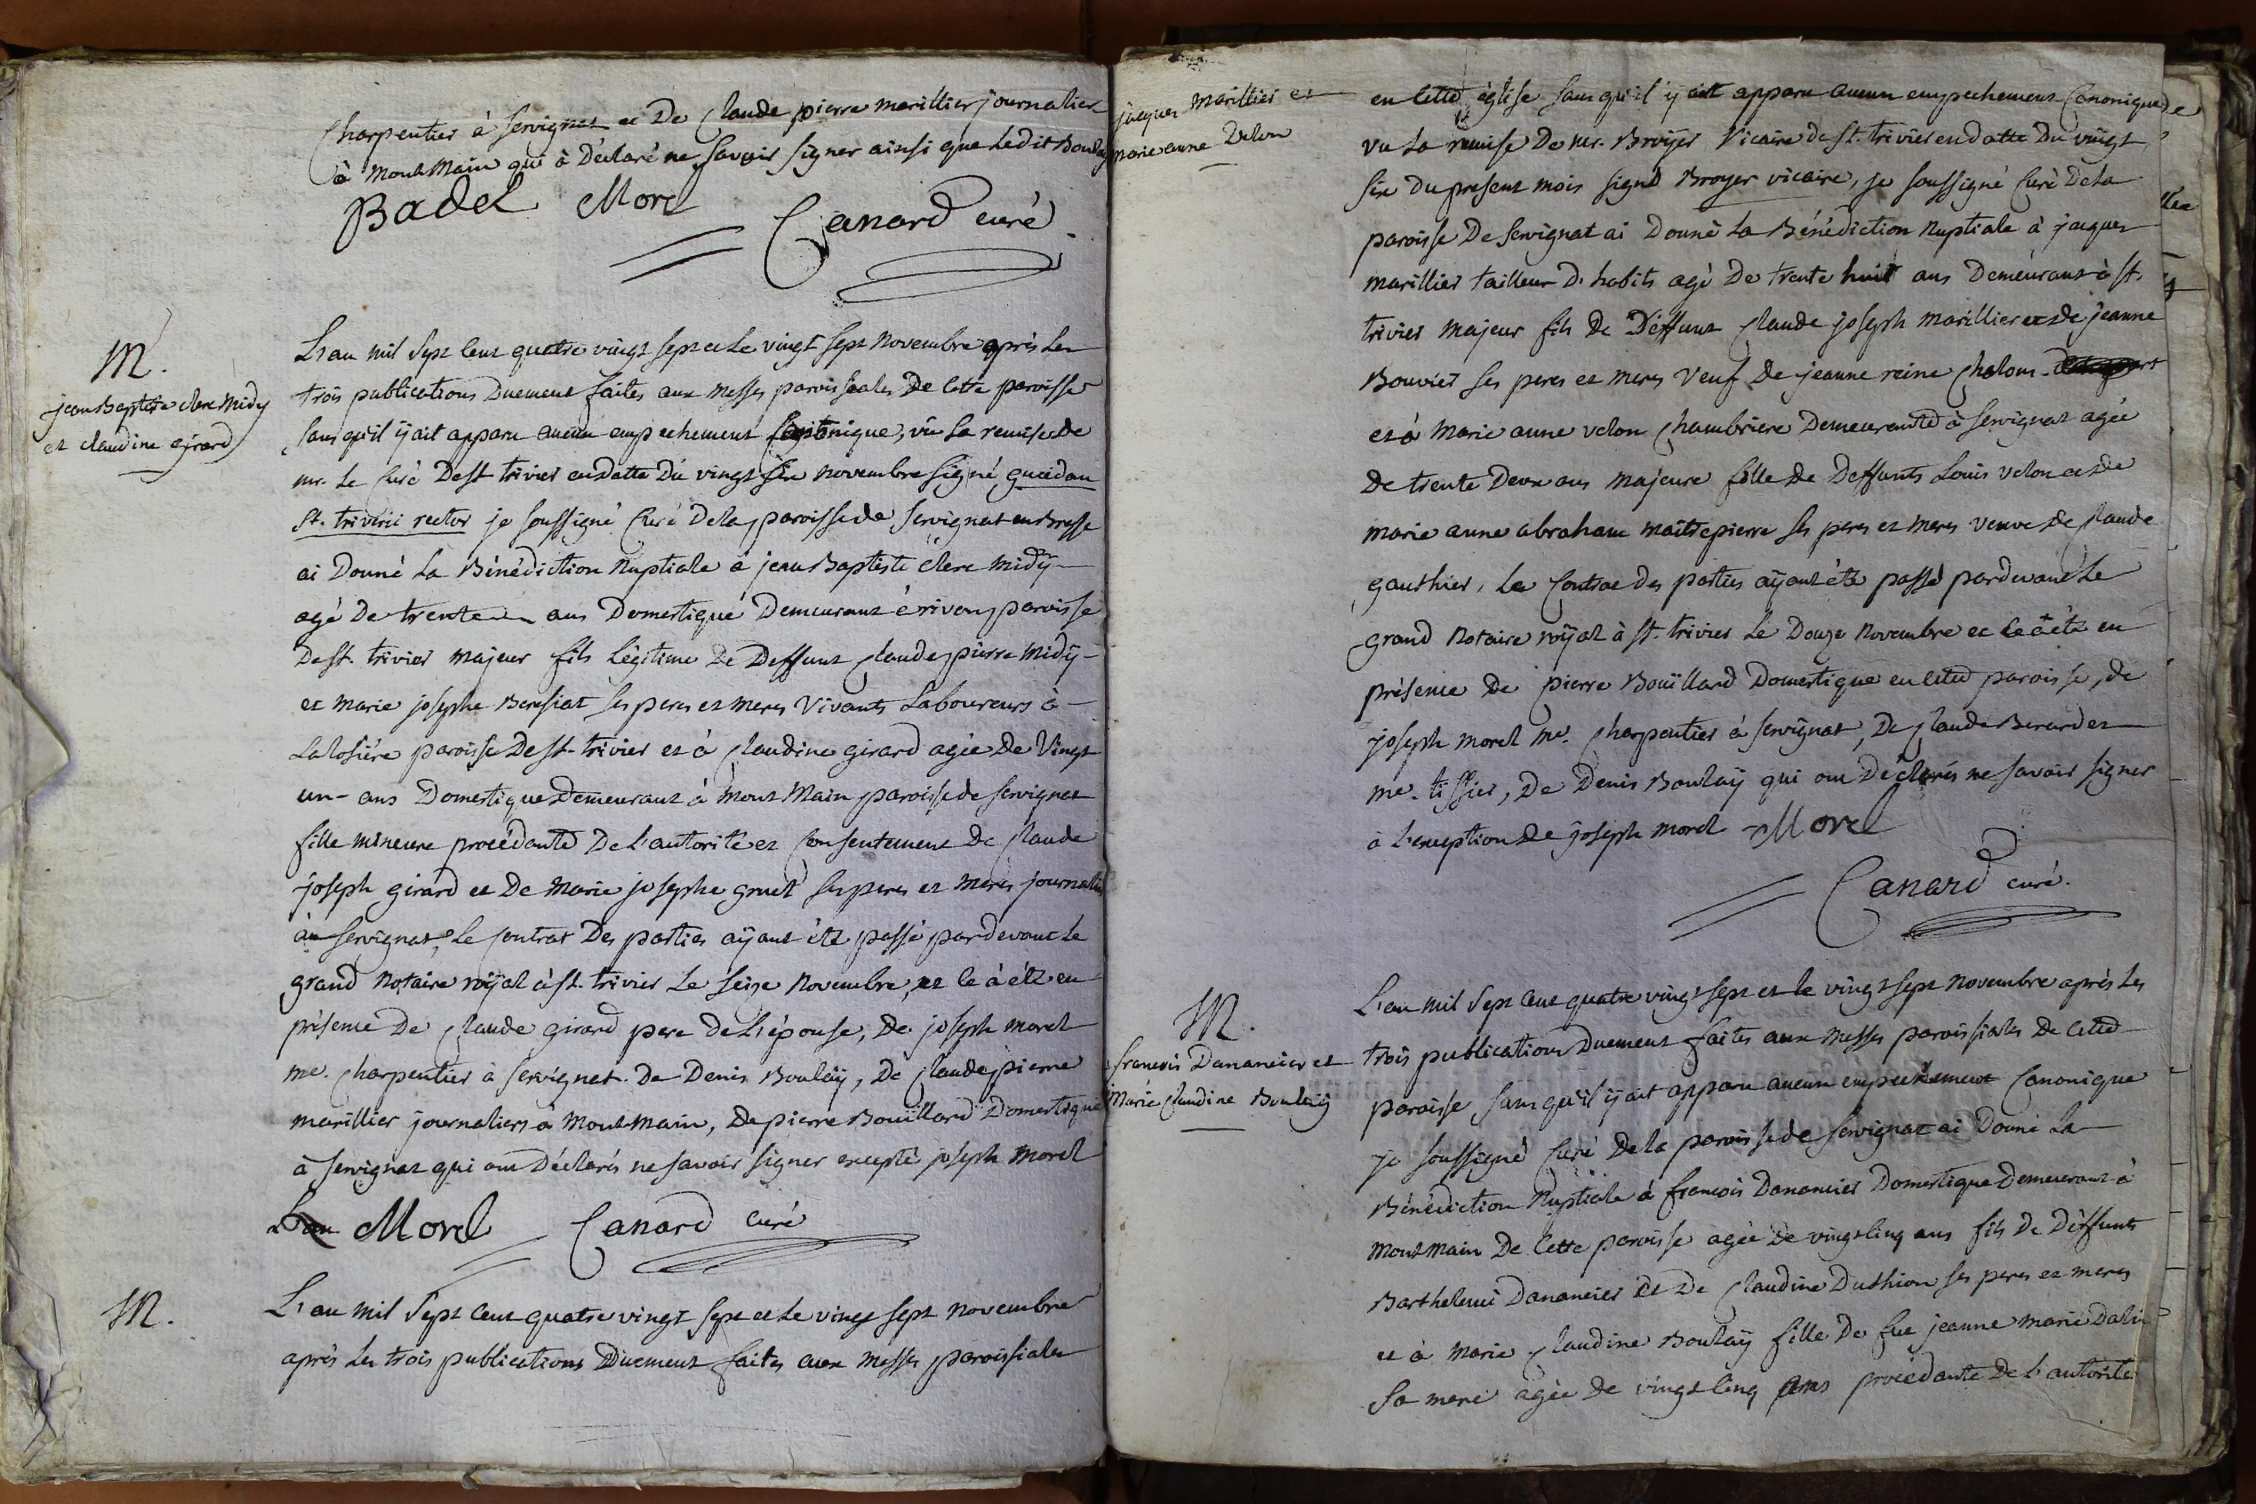 Charpentier à servignat et De Claude pierre marillier journalier
à Mont Main qui à Déclaré ne savoir signer ainsi que ledit Boulay
Badel Morel
Canard curé
M.
jean Baptiste clerc Midy
et claudine girard
L'an mil sept cent quatre vingt sept et le vingt sept novembre après les
trois publications Duement faites aux messes paroissiales De cette paroisse
sans qu'il ÿ ait apparu aucun empechement Canonique, vû la remise de
mr. le Curé De st trivier en datte Du vingt six novembre signé guedan
st. triverii rector je soussigné Curé De la paroisse de servignat en Bresse
ai Donné la Bénédiction Nuptiale à jean Baptiste clerc midÿ
agé De trente ans Domestique Demeurant à paroisse
De st. trivier majeur fils légitime De Deffunt Claude pierre Midÿ
et marie josephe Beressiat ses peres et meres Vivants Laboureurs à
la losiére paroisse De st-trivier et à Claudine girard agée De Vingt
un- ans Domestique Demeurant à Mont Main paroisse de servignat
fille mineure procédante De l'autorité et Consentement De Claude
joseph girard et De Marie josephe gruel ses peres et meres journaliers
à servignat, le Contrat Des parties aÿant été passé pardevant le
grand Notaire roÿal à st. trivier le seize Novembre, et ce à été en
présence De Claude girard pere De l'épouse, De joseph morel
me. Charpentier à servignat De Denis Boulaÿ, De Claude pierre
marillier journaliers à Mont-main, De pierre Bouillard Domestique
à servignat qui ont Déclarés ne savoir signer excepté joseph Morel
L'an Morel Canard curé
M.
L'an mil sept cent quatre vingt sept et le vingt sept novembre
après les trois publications Duement faites aux messes paroissiales
jaques Marillier et
marie anne Velon
en cette église sans qu'il ÿ ait apparu aucun empechement Canonique
vu la remise De mr. Broÿer Vicaire De st. trivier en datte Du vingt
six du present mois signé Broyer vicaire, je soussigné Curé De la
paroisse De servignat ai Donné la Bénédiction Nuptiale à jaques
marillier tailleur D'habits agé De trente huit ans Demeurant à st.
trivier majeur fils De Deffunt Claude joseph marillier et de jeanne
Bouvier ses peres et meres Veuf De jeanne reine Chalons
et à Marie anne velon Chambriere Demeurante à servignat agée
De trente Deux ans majeure fille De Deffunts Louis velon et de
marie anne abraham maitrepierre ses peres et meres veuve De Claude
gauthier, le Contrat des parties aÿant été passé pardevant le
grand Notaire roÿal à st. trivier le Douze Novembre et ce à été en
présence De pierre Bouillard Domestique en cette paroisse, de
joseph morel me. Charpentier à servignat, De Claude Berardet
me. tissier, De Denis Boulaÿ qui ont Déclarés ne savoir signer
à l'exception De joseph morel Morel
Canard curé.
M.
francois Dananciér et
Marie Claudine Boulaÿ
L'an mil sept cent quatre vingt sept et le vingt sept novembre après les
trois publications Duement faites aux messes paroissiales De cette
paroisse sans qu'il ÿ ait apparu aucun empechement Canonique
je soussigné Curé De la paroisse de servignat ai Donné la
Bénédiction Nuptiale à francois Dananciér Domestique Demeurant à
Mont Main De Cette paroisse agée De vingt cinq ans fils De Deffunts
Barthelemi Dananciér et De Claudine Duthion ses peres et meres
et à Marie Claudine Boulaÿ fille De fue jeanne marie
sa mere agée de vingt cinq ans procédante De l'autorité